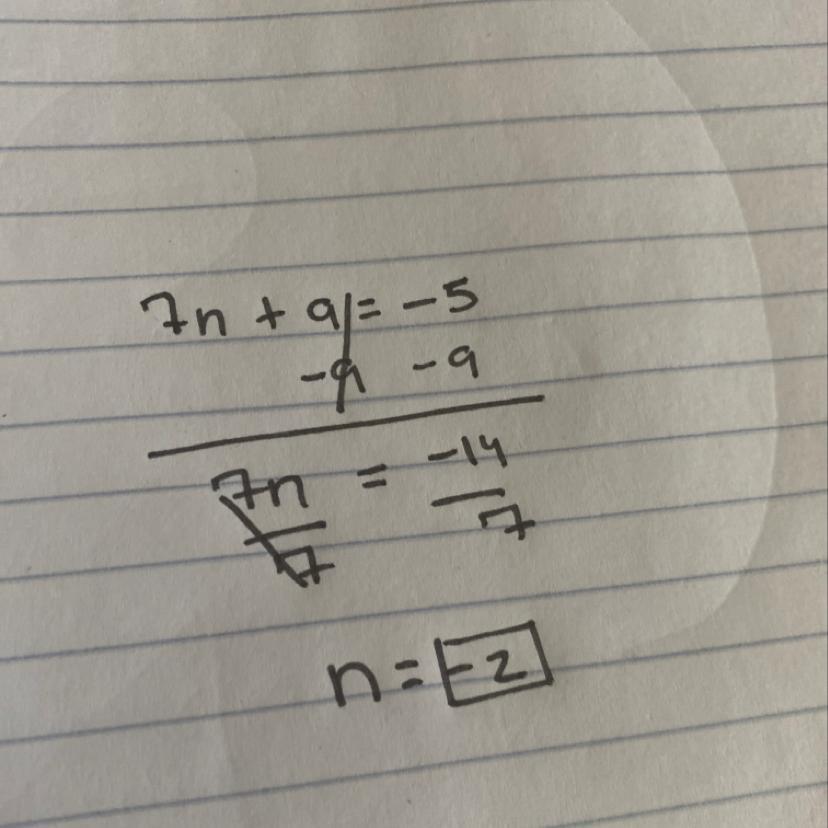 7n + 9 = -5
-9 -9
7n = -14
7 7
n = -2